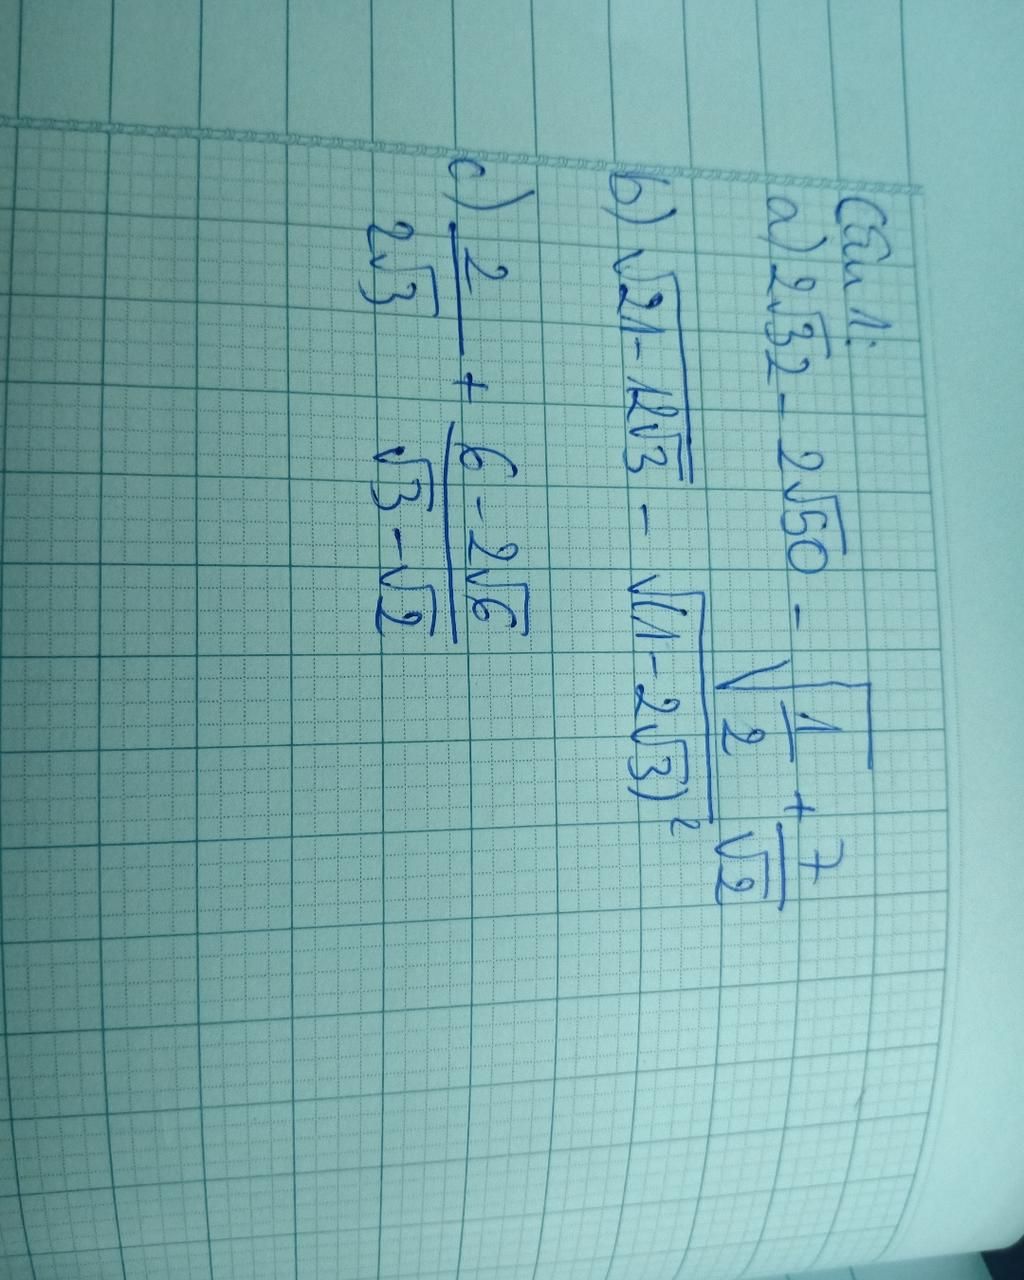 Câu 1:
a) 2√32 - 2√50 - √(1/2) + 7/√2
b) √(21 - 12√3) - √((1 - 2√3)²)
c) 2/(2√3) + (6 - 2√6)/(√3 - √2)